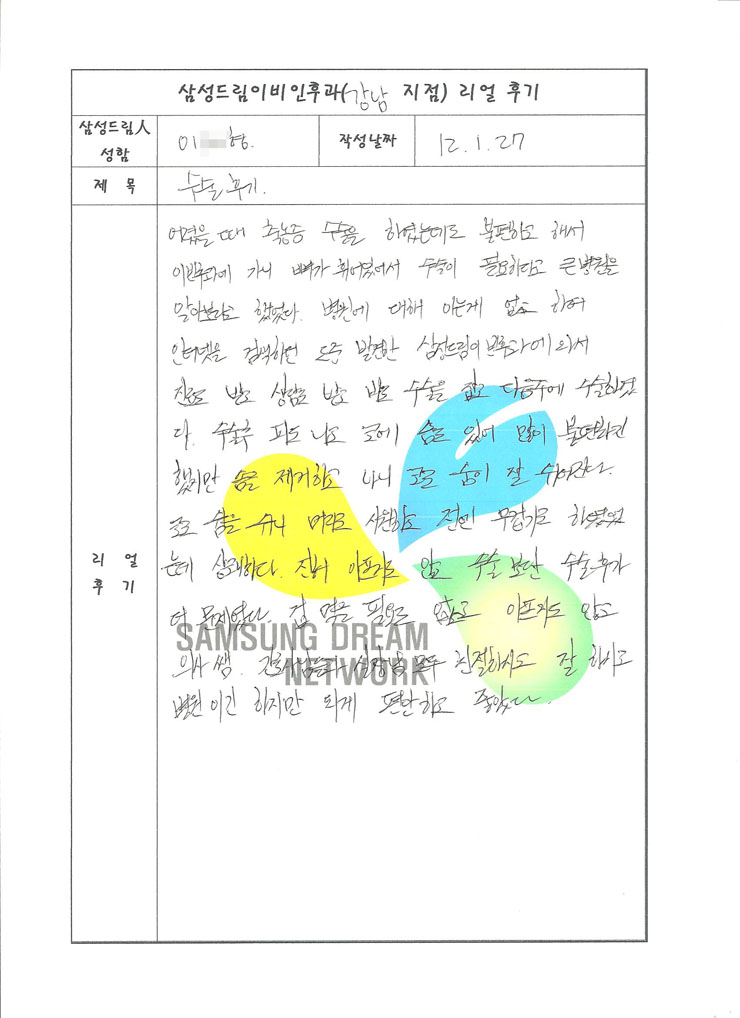 삼성드림이비인후과(강남 지점) 리얼 후기
삼성드림人 성함
이 형.
작성날짜
12.1.27
제 목
수술후기.
리 얼 후 기
어렸을 때 축농증 수술을 하였는데도 불편하고 해서
이빈후과에 가니 뼈가 휘어있어서 수술이 필요하다고 큰병원을
알아보라고 했었다. 병원에 대해 아는게 없고 하여
인터넷을 검색하던 도중 발견한 삼성드림이빈후과에 와서
진료 받고 상담도 받고 바로 수술을 잡고 다음주에 수술하였
다. 수술후 피도 나고 코에 솜도 있어 많이 불편하긴
했지만 솜을 제거하고 나니 코로 숨이 잘 쉬어진다.
코로 숨을 쉬니 머리도 시원하고 전엔 무겁기도 하였었
는데 상쾌하다. 전혀 아프지도 않고 수술보단 수술후가
더 문제였다. 겁 먹을 필요도 없고 아프지도 않고
의사쌤. 간호사님들과 실장님 모두 친절하시도 잘 하시고
병원이긴 하지만 되게 편안하고 좋았다.
SAMSUNG DREAM
NETWORK